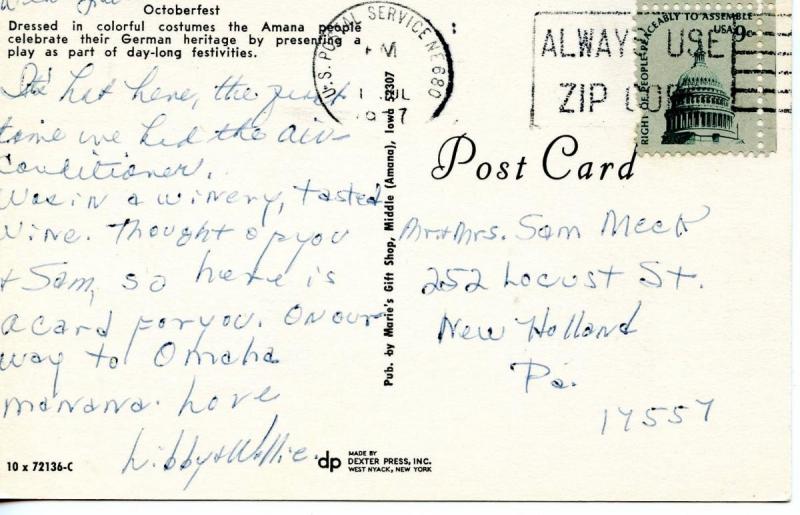 Octoberfest
Dressed in colorful costumes the Amana people
celebrate their German heritage by presenting a
play as part of day-long festivities.
It's hot here, the first
time we had the air-
conditioner.
Was in a winery, tasted
wine. Thought of you
+ Sam, so here is
a card for you. On our
way to Omaha
manana. Love
Libby + Wellie.
10 x 72136-C
Pub. by Marie's Gift Shop, Middle (Amana), Iowa 52307
dp MADE BY
DEXTER PRESS, INC.
WEST NYACK, NEW YORK
U.S. POSTAL SERVICE NE 680
PM
1 JUL
ALWAYS USE
ZIP CODE
RIGHT OF PEOPLE PEACEABLY TO ASSEMBLE
USA 9c
Post Card
Mr + Mrs. Sam Meck
252 Locust St.
New Holland
Pa.
17557